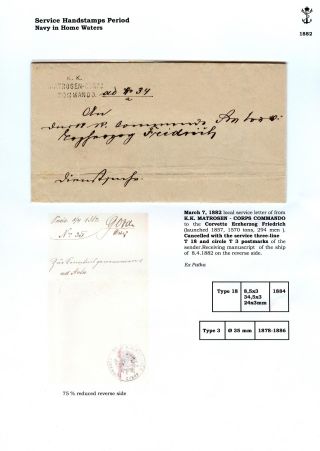 Service Handstamps Period
Navy in Home Waters
1882
K. K.
MATROSEN-CORPS
COMMANDO.
ad No 34
An
Erzherzog Friedrich
Dienstsache.
No 35
ad Acta
March 7, 1882 local service letter of from
K.K. MATROSEN - CORPS COMMANDO
to the Corvette Erzherzog Friedrich
(launched 1857, 1570 tons, 294 men ).
Cancelled with the service three-line
T 18 and circle T 3 postmarks of the
sender.Receiving manuscript of the ship
of 8.4.1882 on the reverse side.
Ex Patka
Type 18
8,5x3
34,5x3
24x3mm
1884
Type 3
Ø 25 mm
1878-1886
75 % reduced reverse side